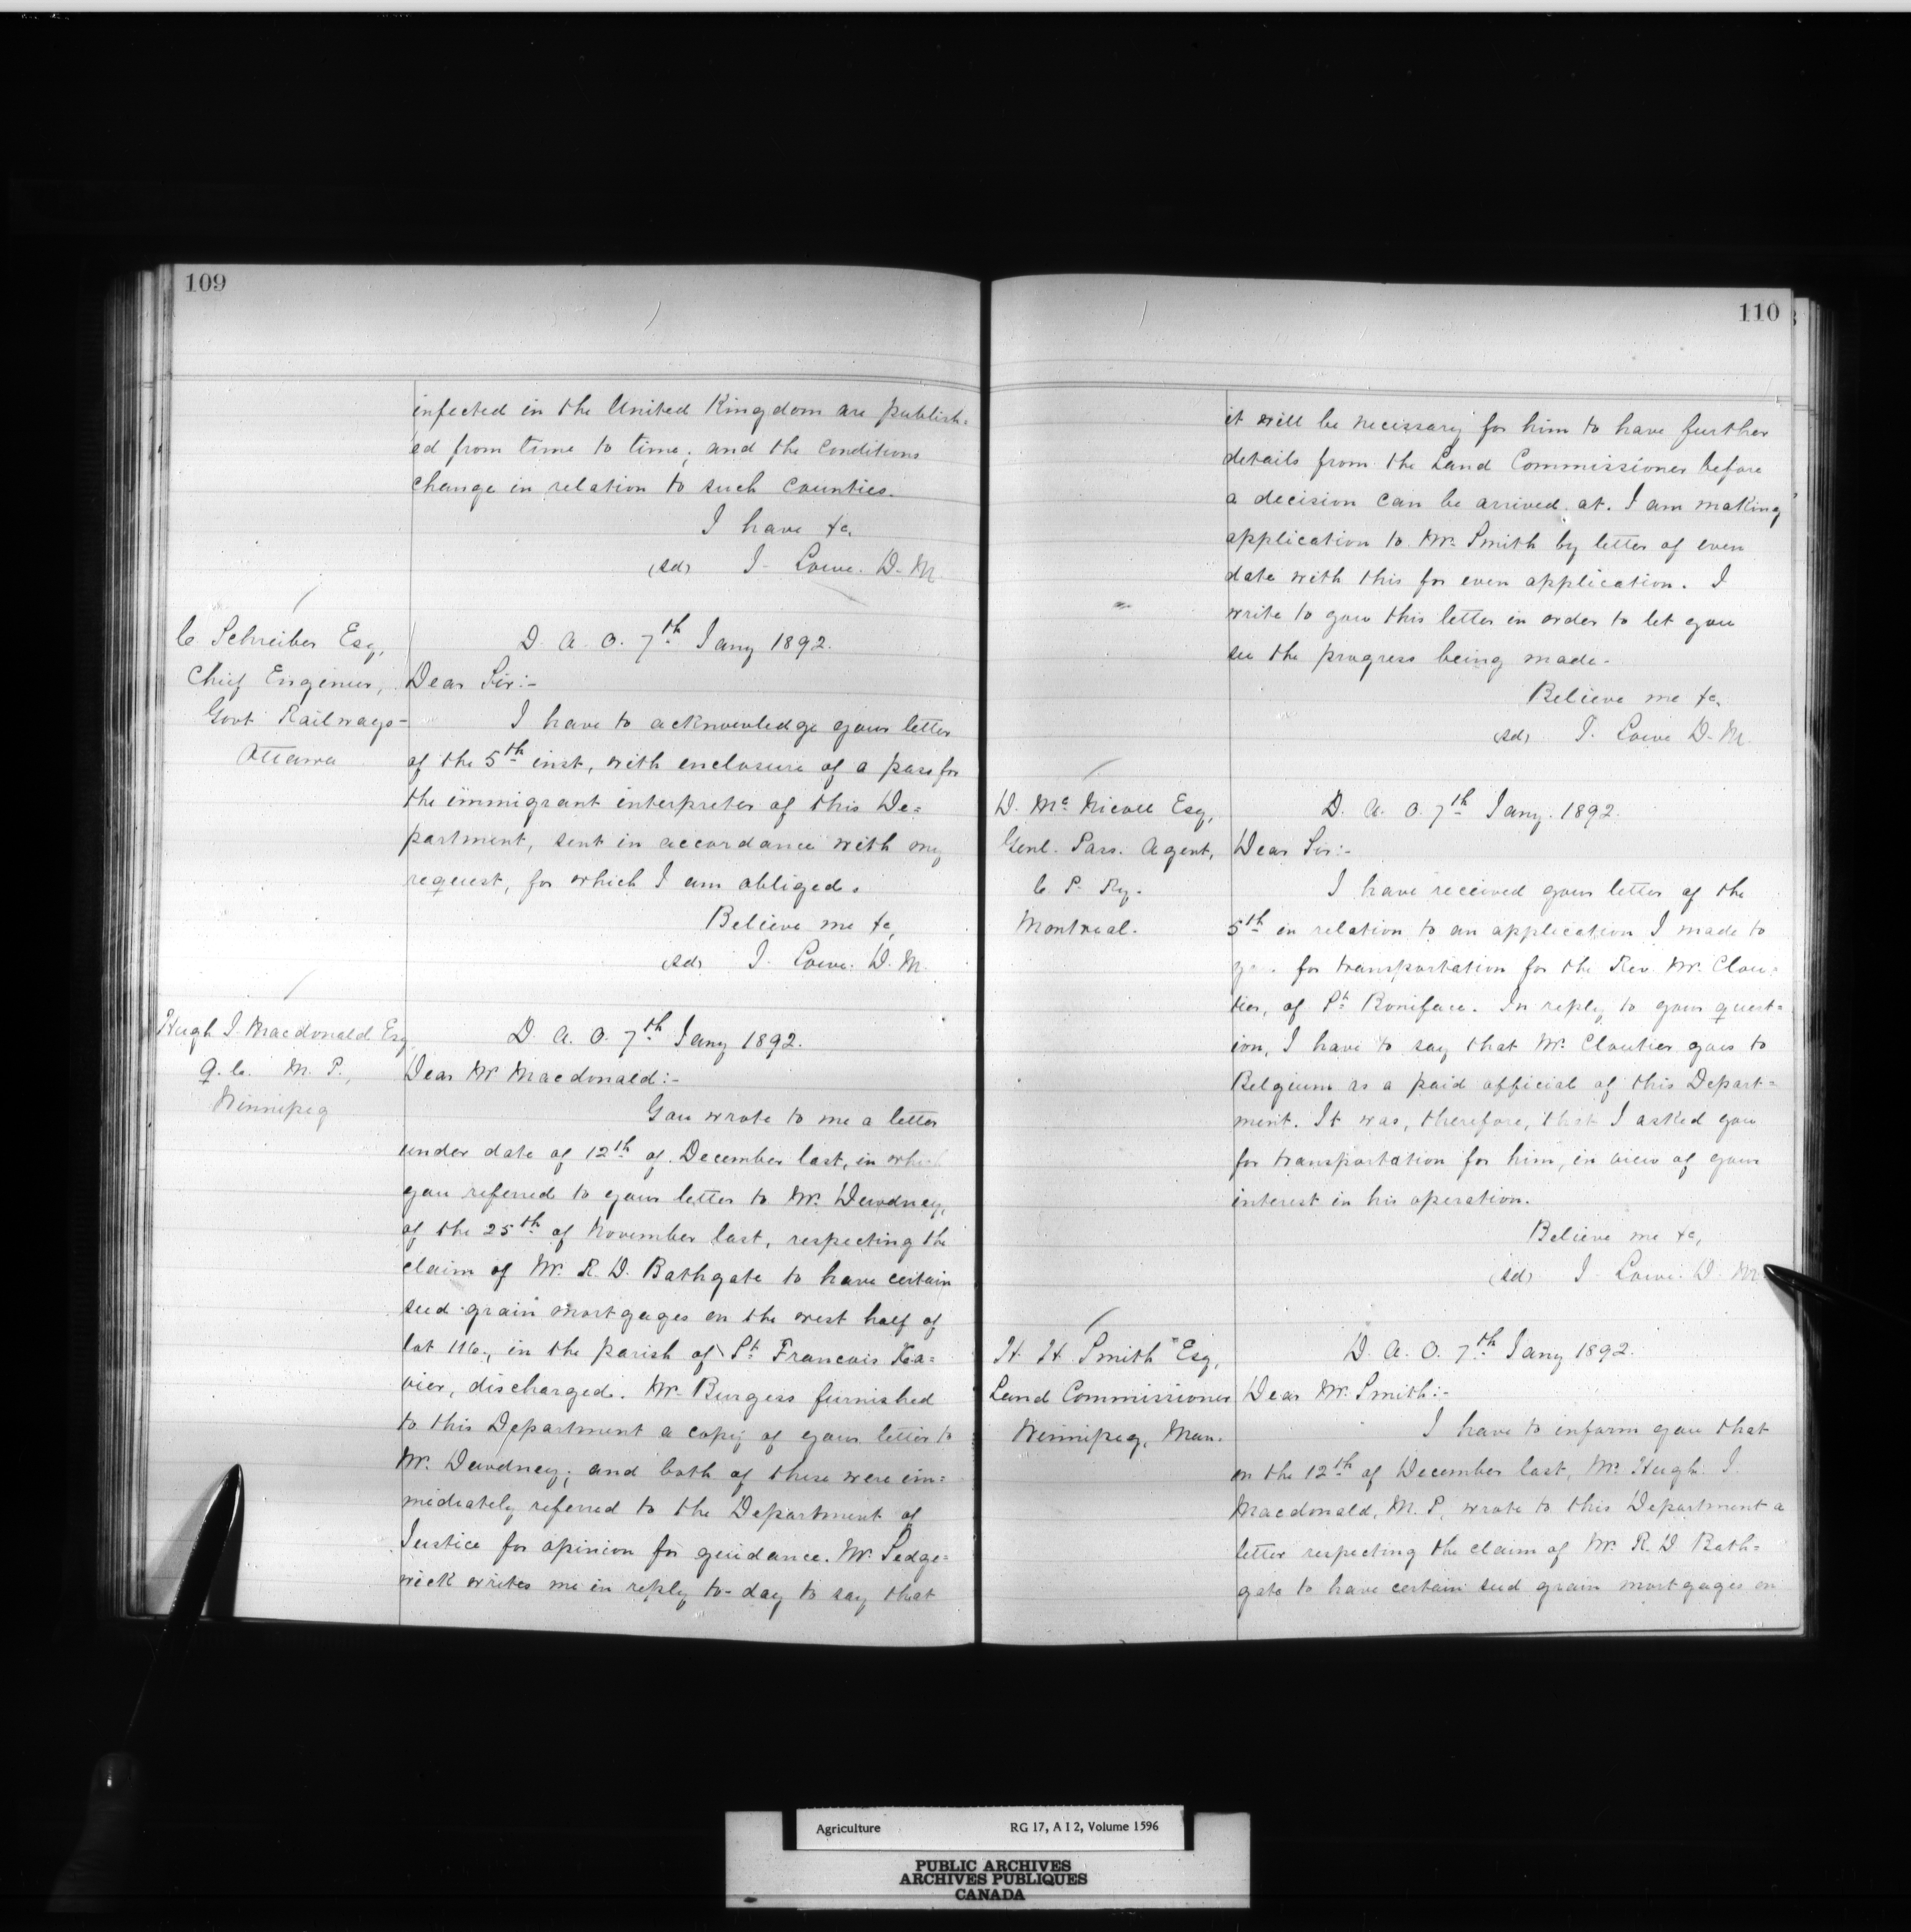 109
infected in the United Kingdom are publish=
ed from time to time; and the conditions
change in relation to such counties.
I have &c,
(sd) J. Lowe. D. M.
C. Schreiber Esq,
Chief Engineer,
Govt Railways-
Ottawa
D. A. O. 7th Jany 1892.
Dear Sir:-
I have to acknowledge your letter
of the 5th inst, with enclosure of a pass for
the immigrant interpreter of this De=
partment, sent in accordance with my
request, for which I am obliged.
Believe me &c,
(sd) J. Lowe. D. M.
Hugh J. Macdonald Esq
Q. C. M. P.,
Winnipeg
D. A. O. 7th Jany 1892.
Dear Mr Macdonald:-
You wrote to me a letter
under date of 12th of December last, in which
you referred to your letter to Mr. Dewdney,
of the 25th of November last, respecting the
claim of Mr. R. D. Bathgate to have certain
seed grain mortgages on the west half of
lot 116, in the parish of St Francois Xa=
vier, discharged. Mr. Burgess furnished
to this Department a copy of your letter to
Mr. Dewdney; and both of these were im=
mediately referred to the Department of
Justice for opinion for guidance. Mr. Sedge=
wick writes me in reply to-day to say that
110
it will be necessary for him to have further
details from the Land Commissioner before
a decision can be arrived at. I am making
application to Mr. Smith by letter of even
date with this for even application. I
write to you this letter in order to let you
see the progress being made-
Believe me &c,
(sd) J. Lowe D. M.
D. Mc Nicoll Esq,
Genl. Pass. Agent,
C. P. Ry.
Montreal.
D. A. O. 7th Jany. 1892.
Dear Sir:-
I have received your letter of the
5th in relation to an application I made to
you for transportation for the Rev. Mr. Clou=
tier, of St Boniface. In reply to your quest=
ion, I have to say that Mr. Cloutier goes to
Belgium as a paid official of this Depart=
ment. It was, therefore, that I asked you
for transportation for him, in view of your
interest in his operation.
Believe me &c,
(sd) J Lowe. D. M.
H. H. Smith Esq,
Land Commissioner
Winnipeg, Man.
D. A. O. 7th Jany 1892.
Dear Mr. Smith:-
I have to inform you that
on the 12th of December last, Mr. Hugh J.
Macdonald, M. P, wrote to this Department a
letter respecting the claim of Mr. R. D Bath=
gate to have certain seed grain mortgages on
Agriculture RG 17, A I 2, Volume 1596
PUBLIC ARCHIVES
ARCHIVES PUBLIQUES
CANADA